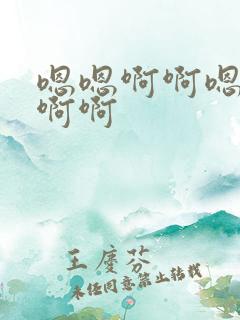 嗯嗯啊啊嗯
啊啊
王庆芬
未经同意禁止转载